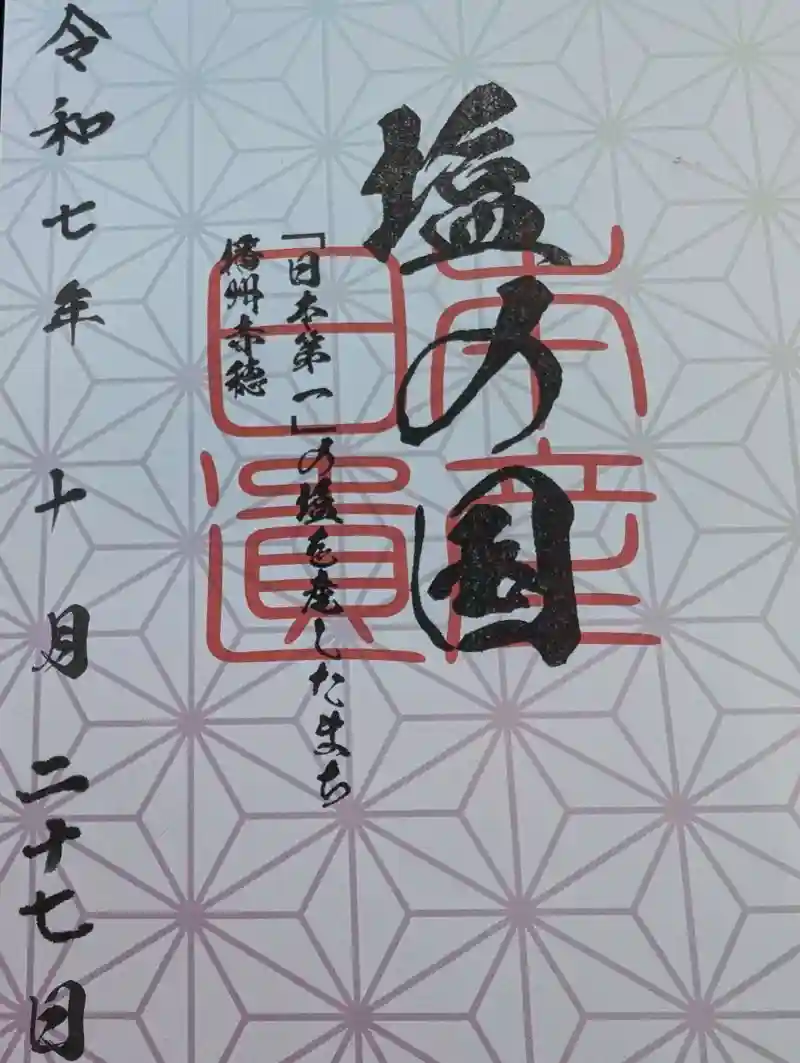 塩の国
「日本第一」の塩を産したまち
播州赤穂
日本遺産
令和七年 十月 二十七日